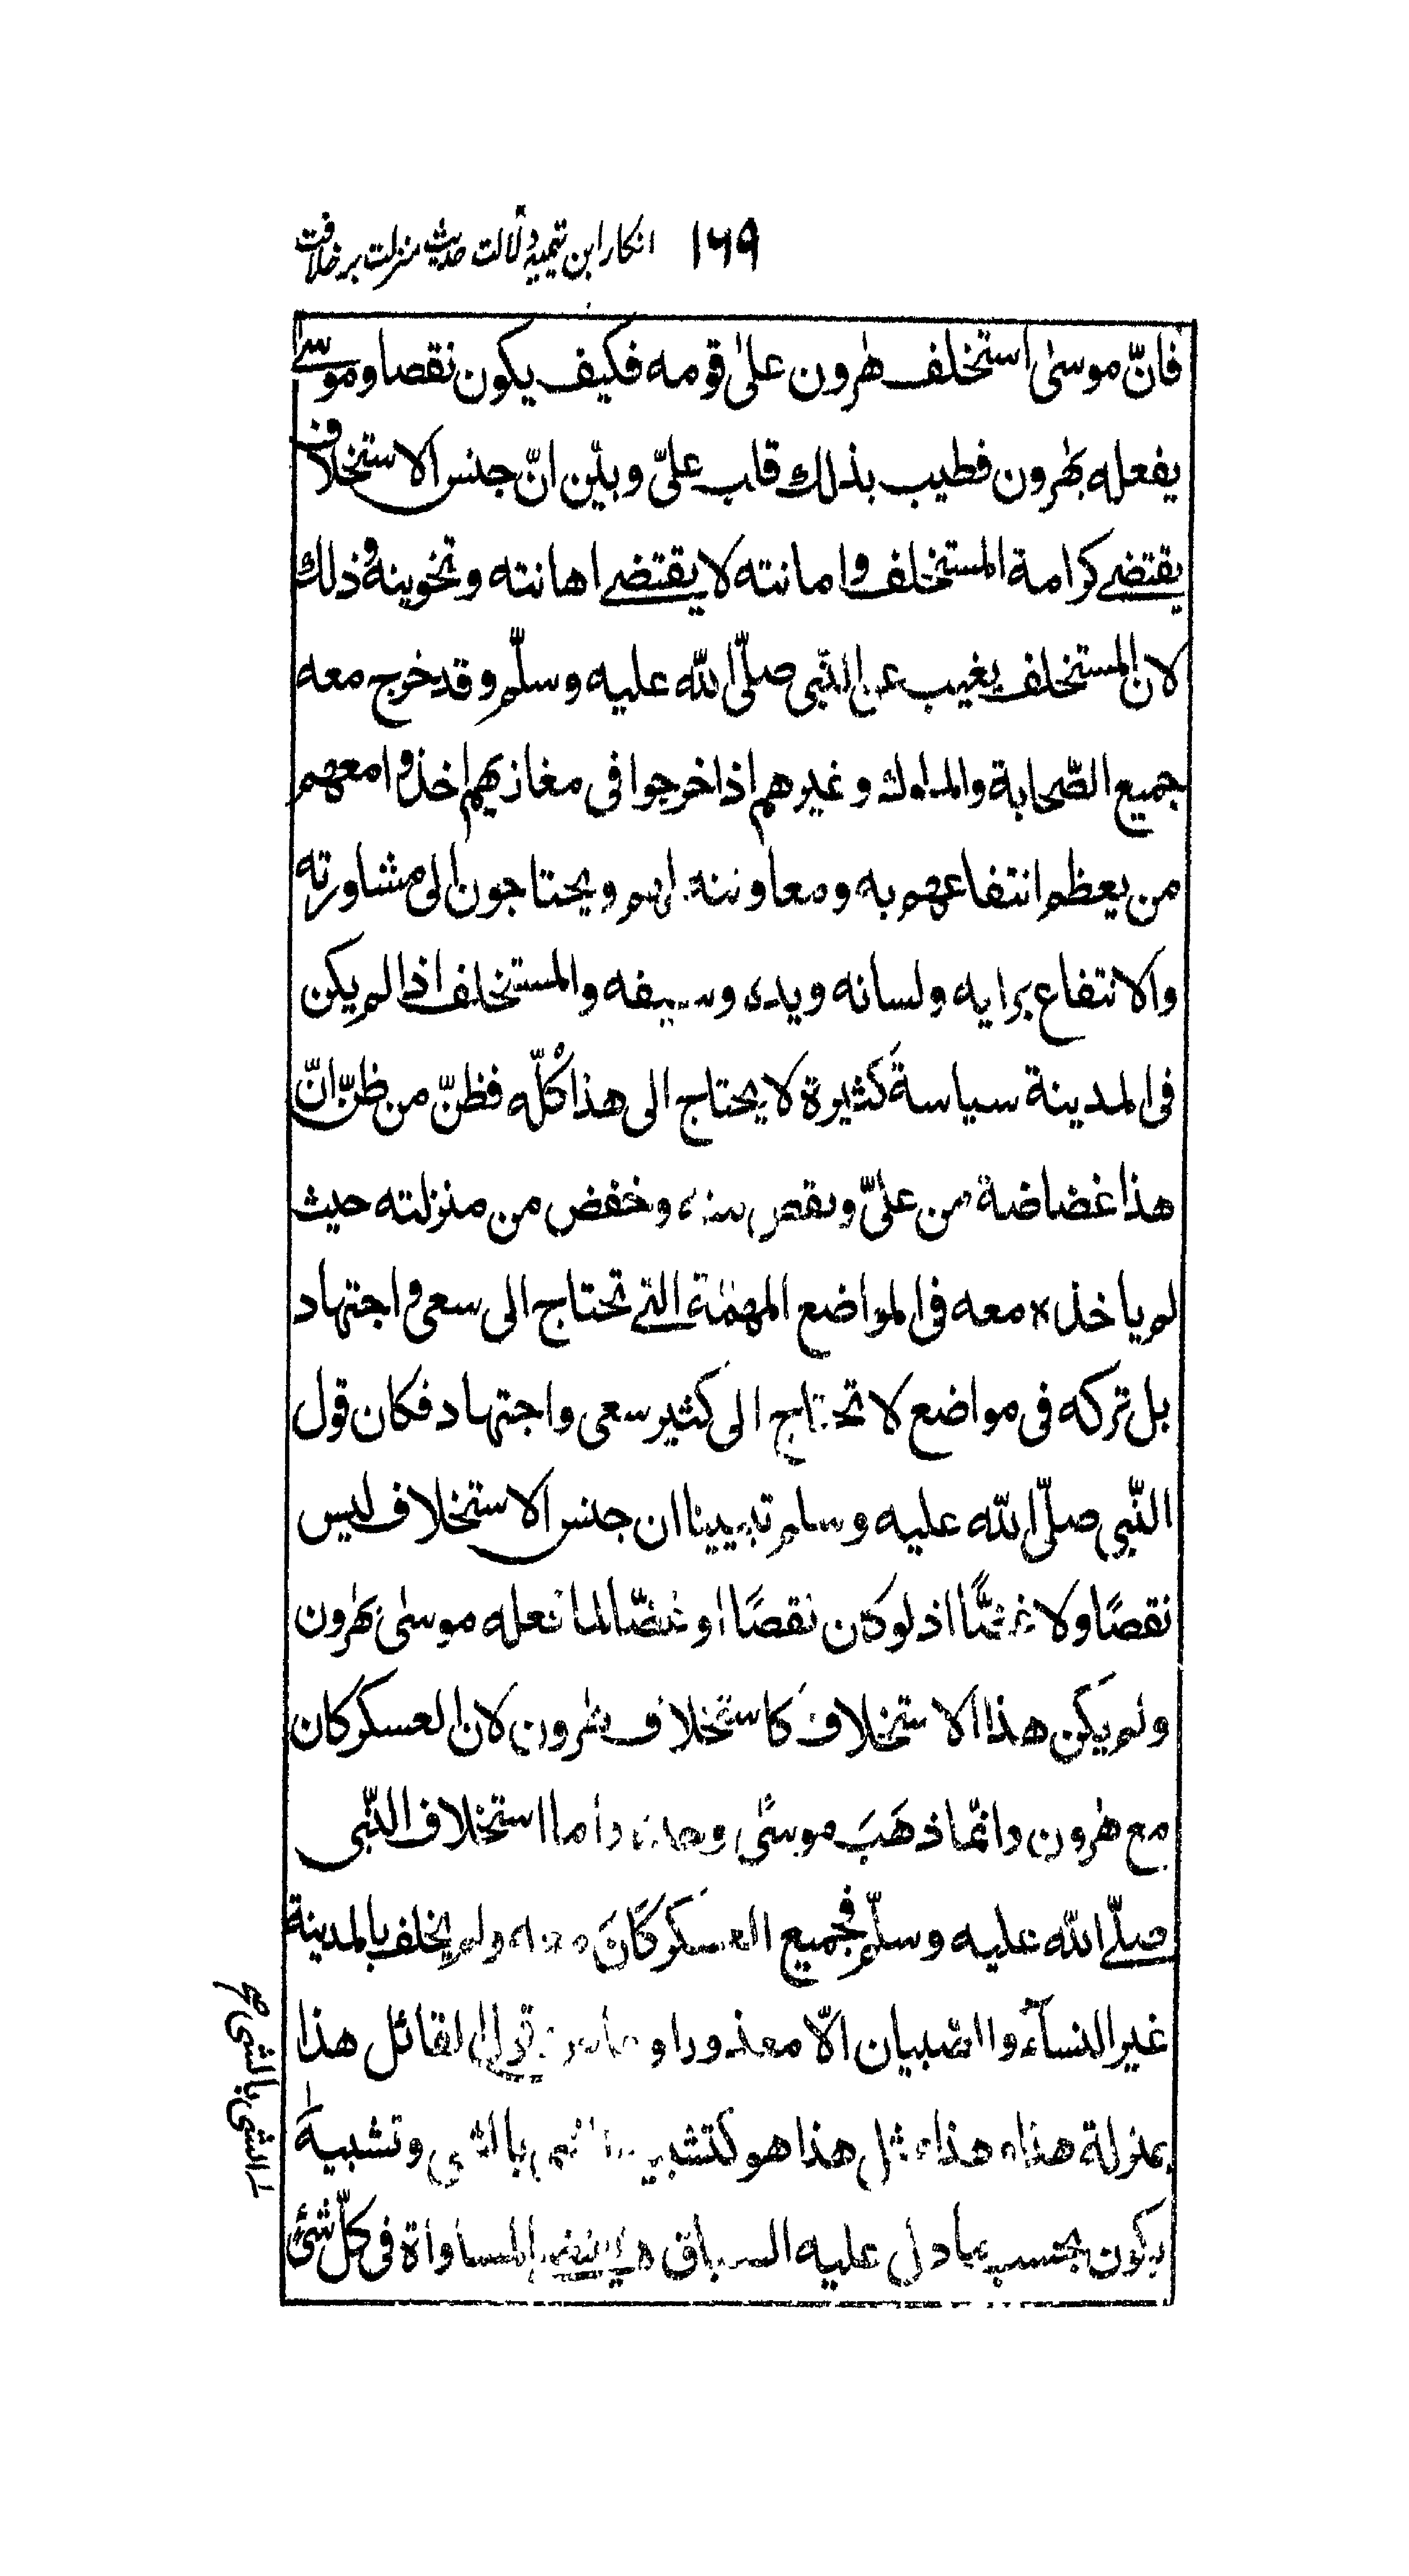 ۱۶۹ انکار ابن تیمیه دلالت حدیث منزلت بر خلافت
فانّ موسىٰ استخلف هٰرون علىٰ قومه فكيف يكون نقصا وموسىٰ
يفعله بهٰرون فطيب بذلك قلب علیّ وبيّن انّ جنس الاستخلاف
يقتضے كرامة المستخلف وامانته لا يقتضے اهانته وتخوينه وذلك
لان المستخلف يغيب عن النّبى صلّى الله عليه وسلّم وقد خرج معه
جميع الصّحابة والملوك وغيرهم اذا خرجوا فى مغازيهم اخذوا معهم
من يعظم انتفاعهم به ومعاونته لهم ويحتاجون الى مشاورته
والانتفاع برايه ولسانه ويده وسيفه والمستخلف اذا لم يكن
فى المدينة سياسة كثيرة لا يحتاج الى هذا كُلّه فظنّ من ظنّ انّ
هذا غضاضة من علىّ ونقص منه وخفض من منزلته حيث
لم ياخذه معه فى المواضع المهمّة التے تحتاج الى سعى واجتهاد
بل تركه فى مواضع لا تحتاج الى كثير سعى واجتهاد فكان قول
النّبى صلّى الله عليه وسلم تبيينا ان جنس الاستخلاف ليس
نقصًا ولا غضًّا اذ لو كان نقصًا او غضّا لما فعله موسىٰ بهٰرون
ولم يكن هذا الاستخلاف كاستخلاف هٰرون لان العسكر كان
مع هٰرون وانّما ذهَبَ موسىٰ وحده واما استخلاف النّبى
صلّے الله عليه وسلّم فجميع العسكر كَانَ معه ولم يخلف بالمدينة
غير النسآء والصّبيان الّا معذور او قول القائل هذا
بمنزلة هذا وهذا مثل هذا هو كتشبيه الشىء بالشى وتشبيه
يكون بحسب ما دل عليه السياق لا يقتضے المساواة فى كلّ شئ
؎ الشى بالشى صح